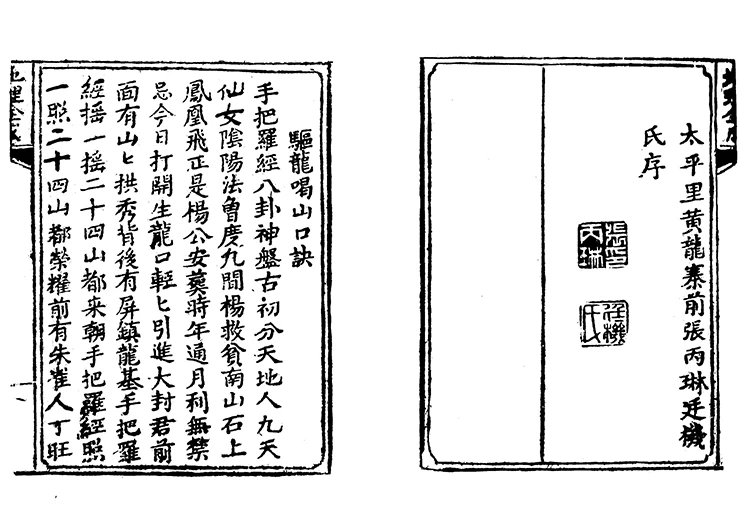 太平里黃龍寨前張丙琳廷機
氏序
張印
丙琳
廷機
氏
驅龍喝山口訣
手把羅經八卦神盤古初分天地人九天
仙女陰陽法魯度九間楊救貧南山石上
鳳凰飛正是楊公安葬時年通月利無禁
忌今日打開生龍口輕匕引進大封君前
面有山匕拱秀背後有屏鎮龍基手把羅
經搖一搖二十四山都來朝手把羅經照
一照二十四山都榮耀前有朱雀人丁旺